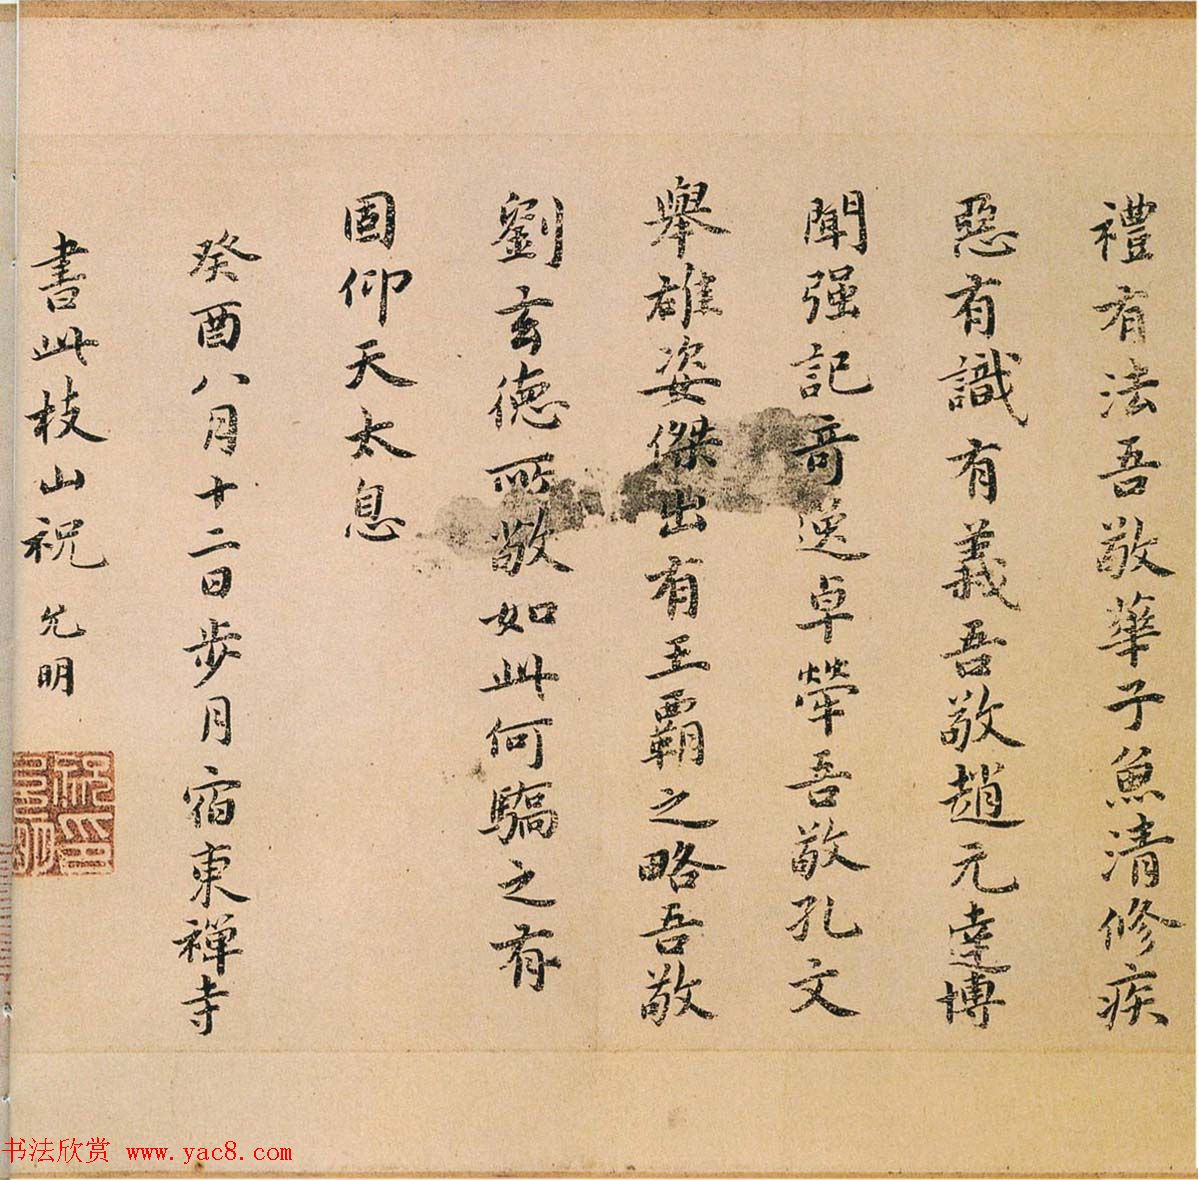 禮有法吾敬華子魚清修疾
惡有識有義吾敬趙元達博
聞强記奇逸卓犖吾敬孔文
舉雄姿傑出有王霸之略吾敬
劉玄德所敬如此何驕之有
固仰天太息
癸酉八月十二日步月宿東禪寺
書此枝山祝允明
祝允明印
书法欣赏 www.yac8.com